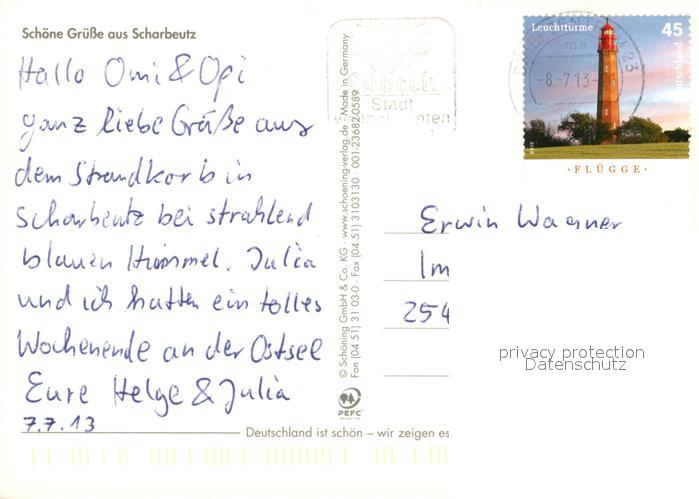 Schöne Grüße aus Scharbeutz
Hallo Omi & Opi
ganz liebe Grüße aus
dem Strandkorb in
Scharbeutz bei strahlend
blauen Himmel. Julia
und ich hatten ein tolles
Wochenende an der Ostsee
Eure Helge & Julia
7.7.13
© Schöning GmbH & Co. KG - www.schoening-verlag.de - Made in Germany
Fon (04 51) 31 03-0 - Fax (04 51) 3103130 - 001-236820589
PEFC
Deutschland ist schön – wir zeigen es
Stadt
Leuchttürme
45
·FLÜGGE·
-8.-7.13-
23
Erwin Wagner
Im
254
privacy protection
Datenschutz